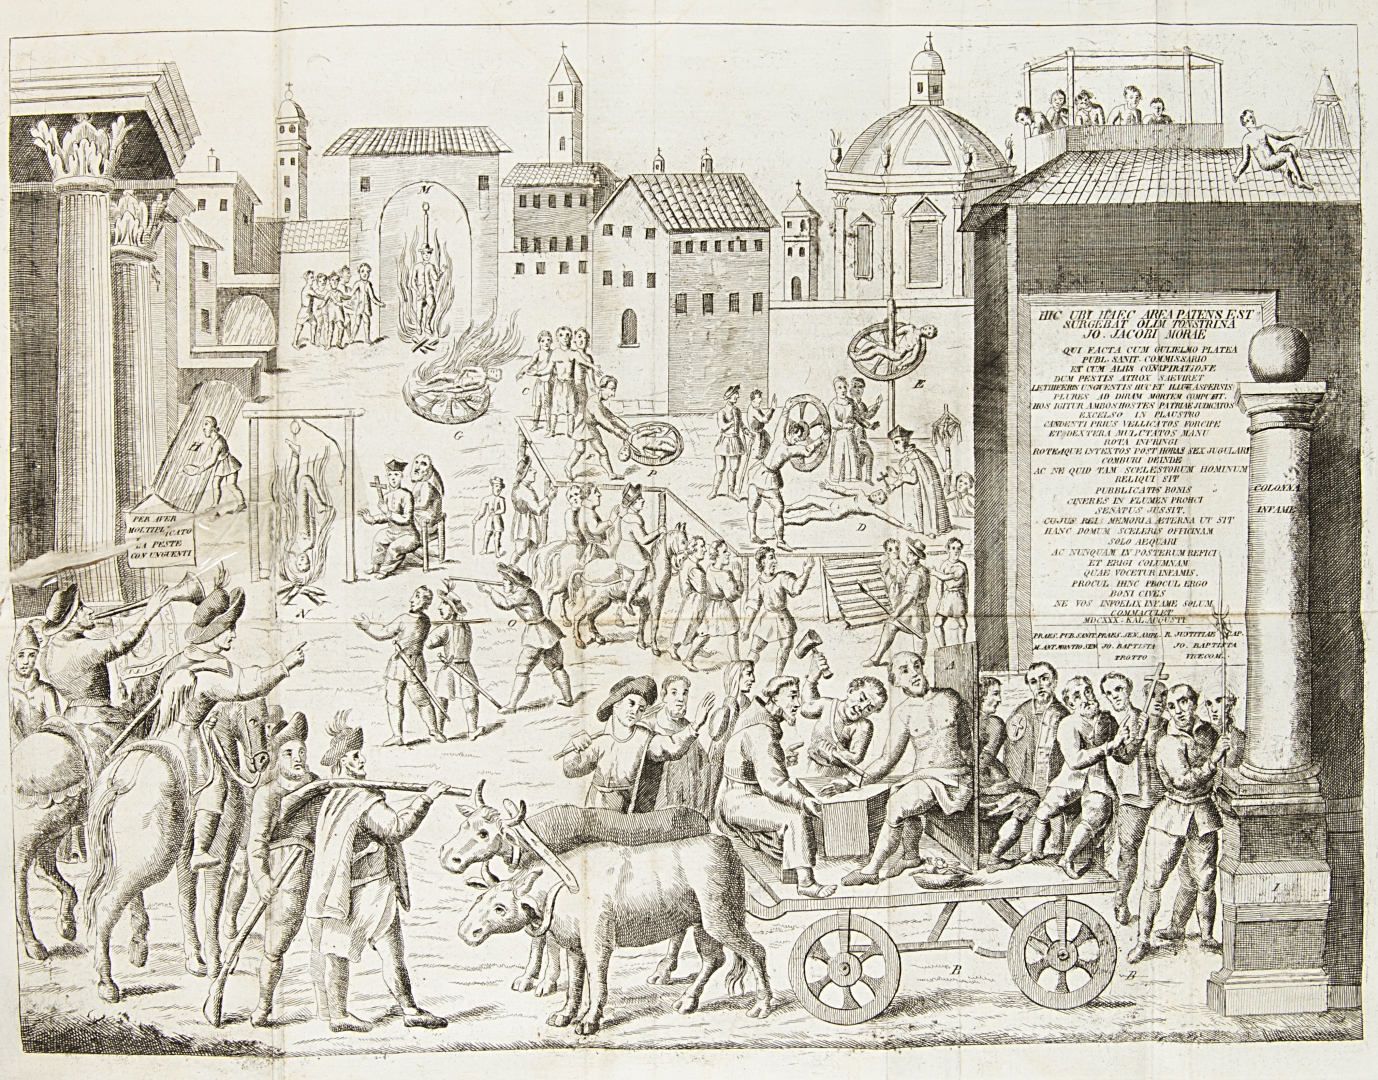 M
HIC UBI HAEC AREA PATENS EST
SURGEBAT OLIM TONSTRINA
JO. JACOBI MORAE
QUI FACTA CUM GULIELMO PLATEA
PUBL. SANIT. COMMISSARIO
ET CUM ALIIS CONSPIRATIONE
DUM PESTIS ATROX SAEVIRET
LETHIFERIS UNGUENTIS HUC ET ILLUC ASPERSIS
PLURES AD DIRAM MORTEM COMPULIT.
HOS IGITUR AMBOS HOSTES PATRIAE JUDICATOS
EXCELSO IN PLAUSTRO
CANDENTI PRIUS VELLICATOS FORCIPE
ET DEXTERA MULCTATOS MANU
ROTA INFRINGI
ROTEAQUE INTEXTOS POST HORAS SEX JUGULARI
COMBURI DEINDE
AC NE QUID TAM SCELESTORUM HOMINUM
RELIQUI SIT
PUBBLICATIS BONIS
CINERES IN FLUMEN PROHCI
SENATUS JUSSIT.
CUJUS REI MEMORIA ÆTERNA UT SIT
HANC DOMUM SCELERIS OFFICINAM
SOLO AEQUARI
AC NUNQUAM IN POSTERUM REFICI
ET ERIGI COLUMNAM
QUAE VOCETUR INFAMIS.
PROCUL HINC PROCUL ERGO
BONI CIVES
NE VOS INFOELIX INFAME SOLUM
COMMACULET
MDCXXX. KAL. AUGUSTI
PRAES. PUB. SANIT. PRAES. SEN. AMPL. R. JUSTITIAE CAP.
M. ANT. MONTIO SEN. JO. BAPTISTA JO. BAPTISTA
TROTTO VICECOM.
COLONNA
INFAME
E
C
G
H
P
D
PER AVER
MOLTIPLICATO
LA PESTE
CON UNGUENTI
M
N
O
I
B
B